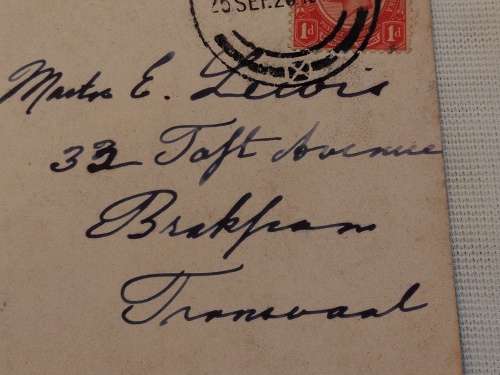 25 SEP. 20
1d 1d
Master E. Lewis
33 Taft Avenue
Brakpan
Transvaal